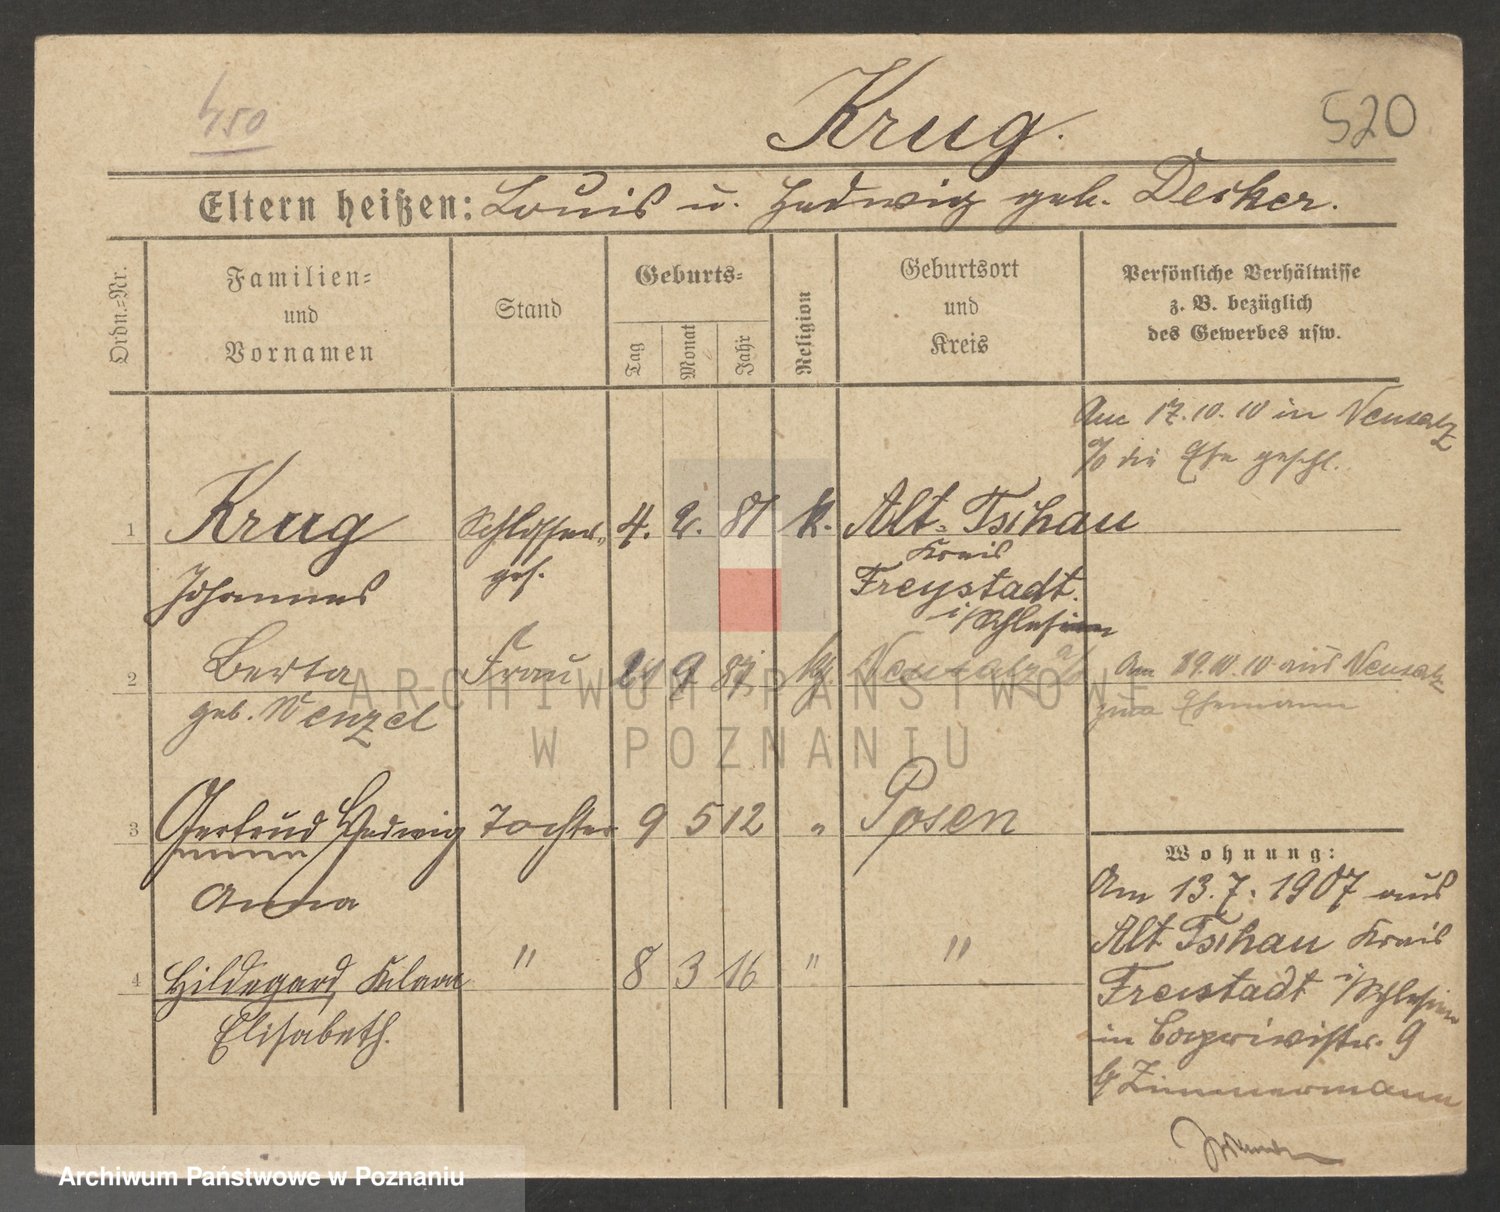 450
Krug.
520
Eltern heißen: Louis u. Hedwig geb. Decker.
Ordn.-Nr.
Familien-
und
Vornamen
Stand
Geburts-
Tag
Monat
Jahr
Religion
Geburtsort
und
Kreis
Persönliche Verhältnisse
z. B. bezüglich
des Gewerbes usw.
Am 17.10.10 in Neusalz
a/o die Ehe geschl.
1 Krug Schlosser- 4. 2. 81 k. Alt-Tschau
Johannes ges. Kreis
Freystadt
i/Schlesien
2 Berta Frau 9 87 Neusalz a/o Am 19.10.10 aus Neusalz
geb. Wenzel zum Ehemann
3 Gertrud Hedwig Tochter 9 5 12 " Posen
Anna
4 Hildegard Klara " 8 3 16 " "
Elisabeth.
Wohnung:
Am 13.7.1907 aus
Alt Tschau Kreis
Freistadt i/Schlesien
in Caprivistr. 9
b/Zimmermann
ARCHIWUM PAŃSTWOWE
W POZNANIU
Archiwum Państwowe w Poznaniu